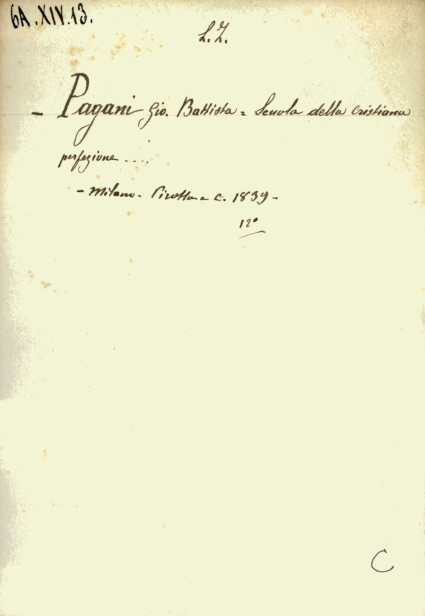 6A.XIV.13.
L.Z.
- Pagani Gio. Battista = Scuola della Cristiana
perfezione ....
- Milano - Pirotta e C. 1839 -
12°
C